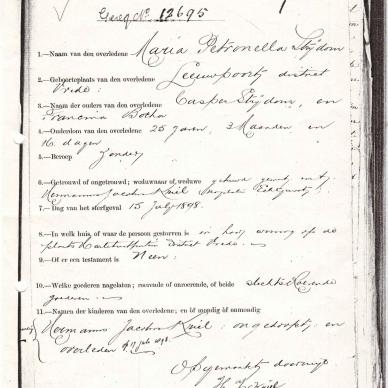 Geregd No. 12695
1.—Naam van den overledene Maria Petronella Strydom
2.—Geboorteplaats van den overledene Leeuwpoort district
Vrede:
3.—Naam der ouders van den overledene Casper Strydom, en
Botha
4.—Ouderdom van den overledene 25 jaren, 3 Maanden en
16 dagen
5.—Beroep Zonder
6.—Getrouwd of ongetrouwd; weduwnaar of weduwe gehuwd geweest met
Hermanus Jacobus
7.—Dag van het sterfgeval 15 July 1898.
8.—In welk huis, of waar de persoon gestorven is en hoof woning op de
plaats District Vrede.
9.—Of er een testament is Neen:
10.—Welke goederen nagelaten; roerende of onroerende, of beide slechts Roerende
goederen
11.—Namen der kinderen van den overledene; en of mondig of onmondig
Hermanus Jacobus : ongedoopt, en
overleden
Opgemaakt door mij